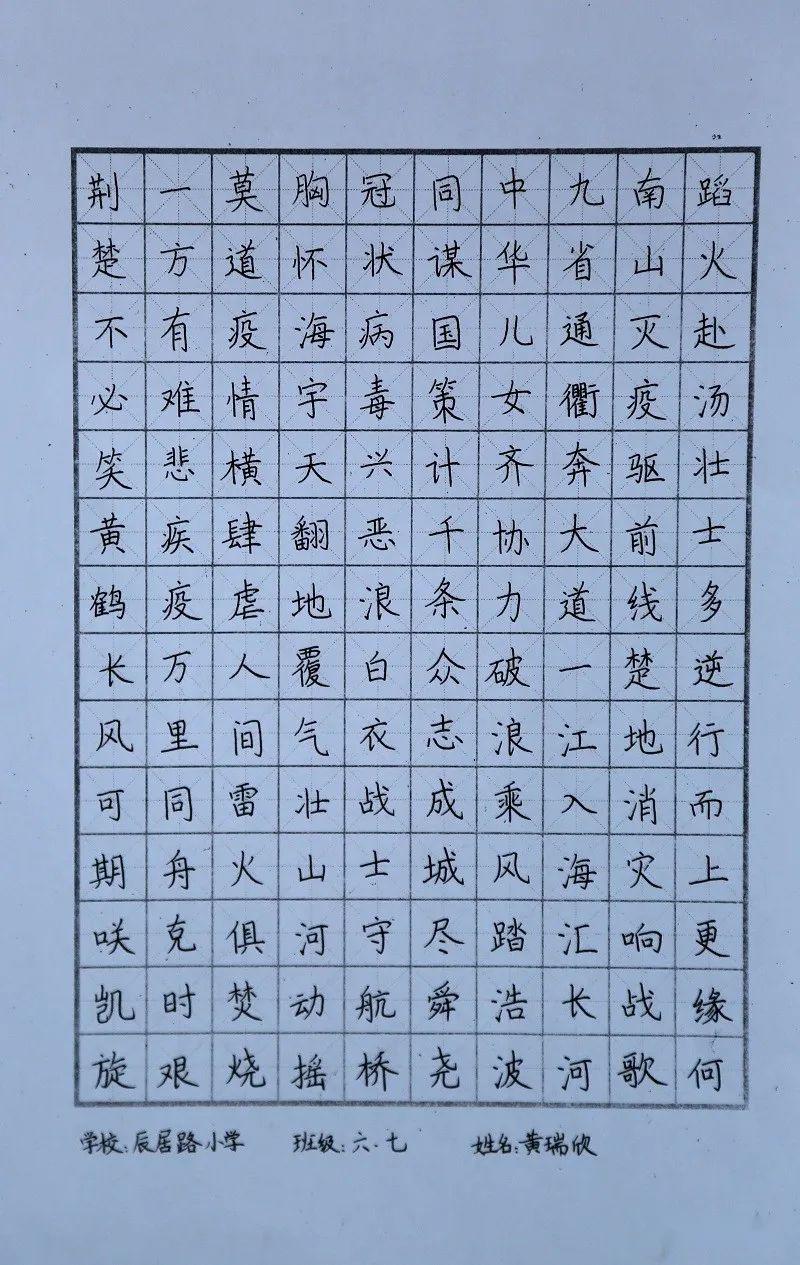 蹈火赴汤壮士多逆行而上更缘何
南山灭疫驱前线楚地消灾响战歌
九省通衢奔大道一江入海汇长河
中华儿女齐协力破浪乘风踏浩波
同谋国策计千条众志成城尽舜尧
冠状病毒兴恶浪白衣战士守航桥
胸怀海宇天翻地覆气壮山河动摇
莫道疫情横肆虐人间雷火俱焚烧
一方有难悲疾疫万里同舟克时艰
荆楚不必笑黄鹤长风可期咲凯旋
学校:辰居路小学 班级:六.七 姓名:黄瑞欣